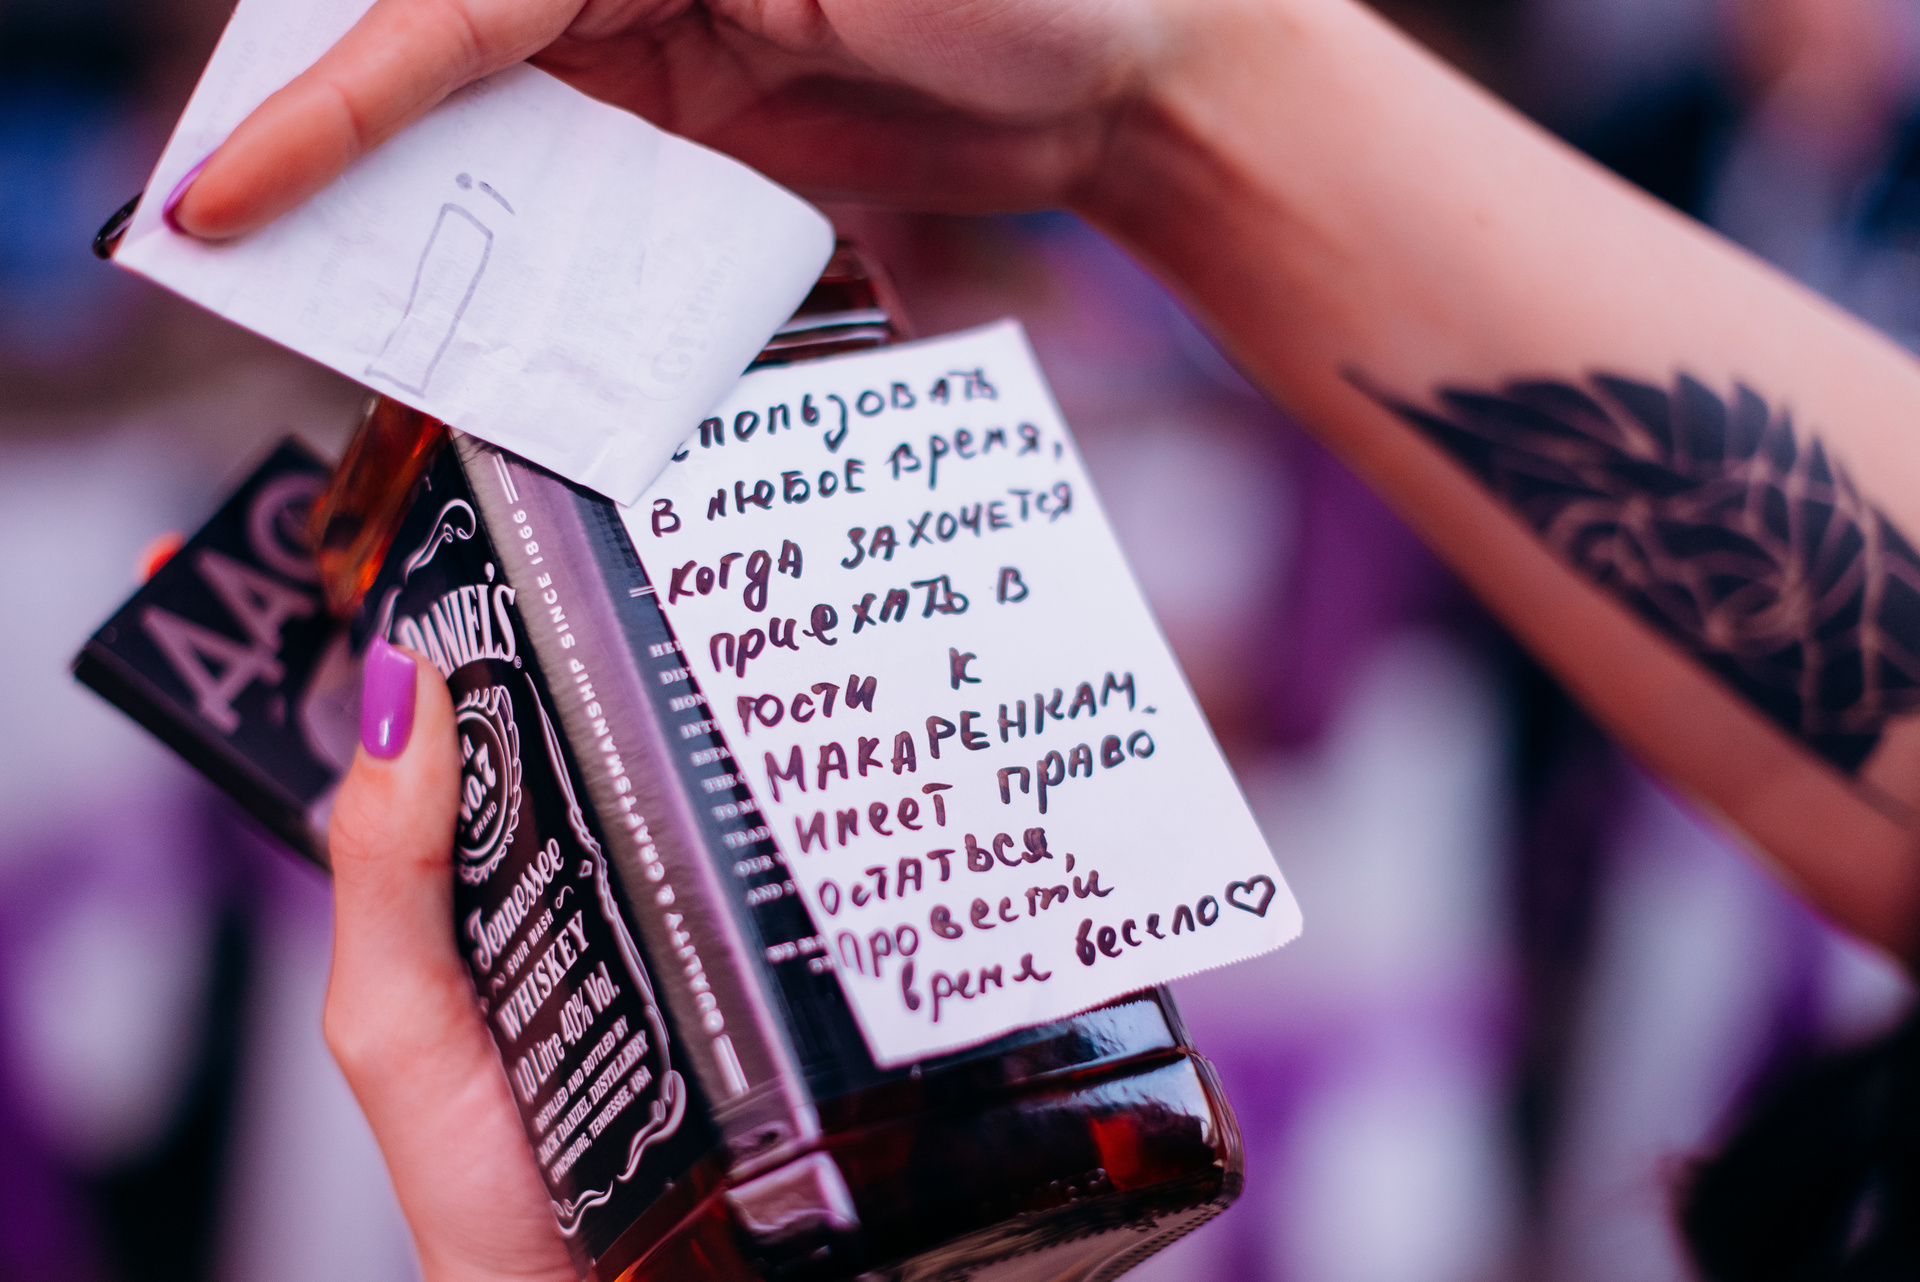 использовать
в любое время,
когда захочется
приехать в
гости к
МАКАРЕНКАМ.
имеет право
остаться,
провести
время весело♡
ДАО
DANIEL'S
No.7
BRAND
Tennessee
SOUR MASH
WHISKEY
1,0 Litre 40% Vol.
DISTILLED AND BOTTLED BY
JACK DANIEL DISTILLERY
LYNCHBURG, TENNESSEE, USA
QUALITY & CRAFTSMANSHIP SINCE 1866